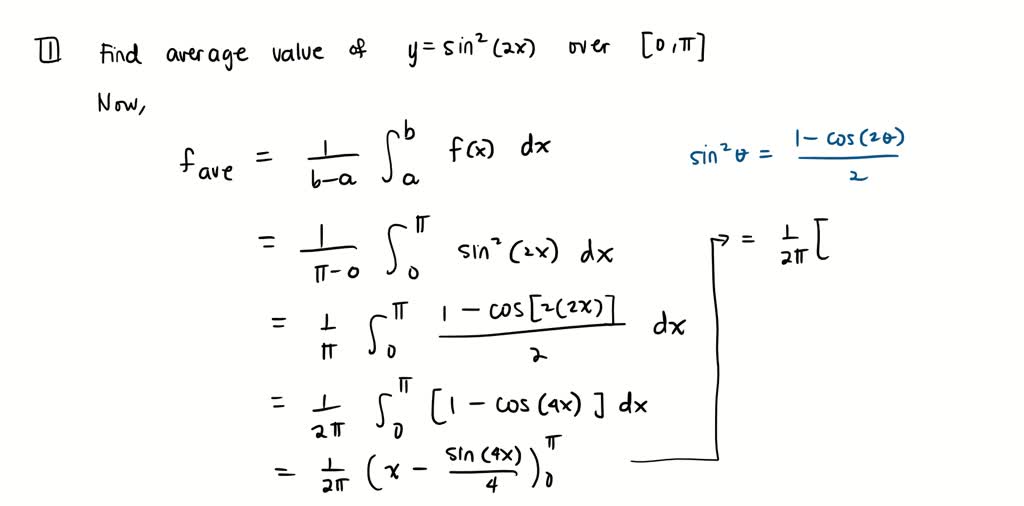 1 Find average value of y = sin²(2x) over [0, π]
Now,
f_ave = 1/(b-a) ∫_a^b f(x) dx
sin²θ = (1 - cos(2θ))/2
= 1/(π-0) ∫_0^π sin²(2x) dx
= 1/π ∫_0^π (1 - cos[2(2x)])/2 dx
= 1/2π ∫_0^π [1 - cos(4x)] dx
= 1/2π (x - sin(4x)/4)_0^π
= 1/2π [